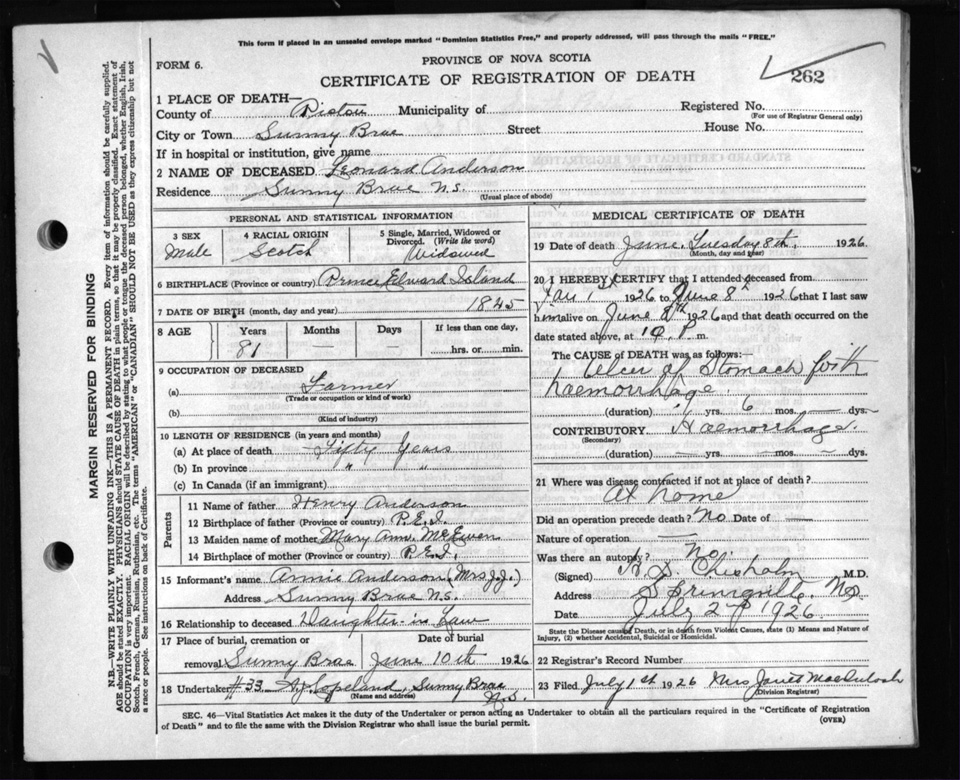 This form if placed in an unsealed envelope marked "Dominion Statistics Free," and properly addressed, will pass through the mails "FREE."
FORM 6.
PROVINCE OF NOVA SCOTIA
CERTIFICATE OF REGISTRATION OF DEATH
262
1 PLACE OF DEATH—
County of Pictou Municipality of Registered No.
(For use of Registrar General only)
City or Town Sunny Brae Street House No.
If in hospital or institution, give name
2 NAME OF DECEASED Leonard Anderson
Residence Sunny Brae N.S.
(Usual place of abode)
PERSONAL AND STATISTICAL INFORMATION
3 SEX 4 RACIAL ORIGIN 5 Single, Married, Widowed or Divorced. (Write the word)
Male Scotch Widowed
6 BIRTHPLACE (Province or country) Prince Edward Island
7 DATE OF BIRTH (month, day and year) 1845
8 AGE Years Months Days If less than one day,
81 — — hrs. or min.
9 OCCUPATION OF DECEASED
(a) Farmer
(Trade or occupation or kind of work)
(b)
(Kind of industry)
10 LENGTH OF RESIDENCE (in years and months)
(a) At place of death Fifty Years
(b) In province " "
(c) In Canada (if an immigrant)
Parents
11 Name of father Henry Anderson
12 Birthplace of father (Province or country) P.E.I.
13 Maiden name of mother Mary Ann McEwen
14 Birthplace of mother (Province or country) P.E.I.
15 Informant's name Annie Anderson (Mrs J.J.)
Address Sunny Brae N.S.
16 Relationship to deceased Daughter-in Law
17 Place of burial, cremation or Date of burial
removal Sunny Brae June 10th 1926
18 Undertaker #33 Copeland, Sunny Brae N.S.
(Name and address)
MEDICAL CERTIFICATE OF DEATH
19 Date of death June, Tuesday 8th, 1926
(Month, day and year)
20 I HEREBY CERTIFY that I attended deceased from
Jan 1 1926 to June 8 1926 that I last saw
him alive on June 8th 1926 and that death occurred on the
date stated above, at P. m.
The CAUSE OF DEATH was as follows:
Ulcer of Stomach with
haemorrhage
(duration) yrs. 6 mos. — dys.
CONTRIBUTORY Haemorrhage.
(Secondary)
(duration) — yrs. — mos. — dys.
21 Where was disease contracted if not at place of death?
At home
Did an operation precede death? No Date of —
Nature of operation —
Was there an autopsy? No
(Signed) Chisholm M.D.
Address Springville, N.S.
Date July 2nd 1926
State the Disease causing Death, or in death from Violent Causes, state (1) Means and Nature of
Injury, (2) whether Accidental, Suicidal or Homicidal.
22 Registrar's Record Number
23 Filed July 1st 1926 Mrs Janet MacCulloch
(Division Registrar)
SEC. 46—Vital Statistics Act makes it the duty of the Undertaker or person acting as Undertaker to obtain all the particulars required in the "Certificate of Registration
of Death" and to file the same with the Division Registrar who shall issue the burial permit.
(OVER)
MARGIN RESERVED FOR BINDING
N.B.—WRITE PLAINLY WITH UNFADING INK—THIS IS A PERMANENT RECORD. Every item of information should be carefully supplied.
AGE should be stated EXACTLY. PHYSICIANS should STATE CAUSE OF DEATH in plain terms, so that it may be properly classified. Exact statement of
OCCUPATION is very important. RACIAL ORIGIN will be described by stating to what people or tongue the deceased person belonged, whether English, Irish,
Scotch, French, German, Russian, Ruthenian, etc. The terms "AMERICAN" or "CANADIAN" SHOULD NOT BE USED as they express citizenship but not
a race or people. See instructions on back of Certificate.